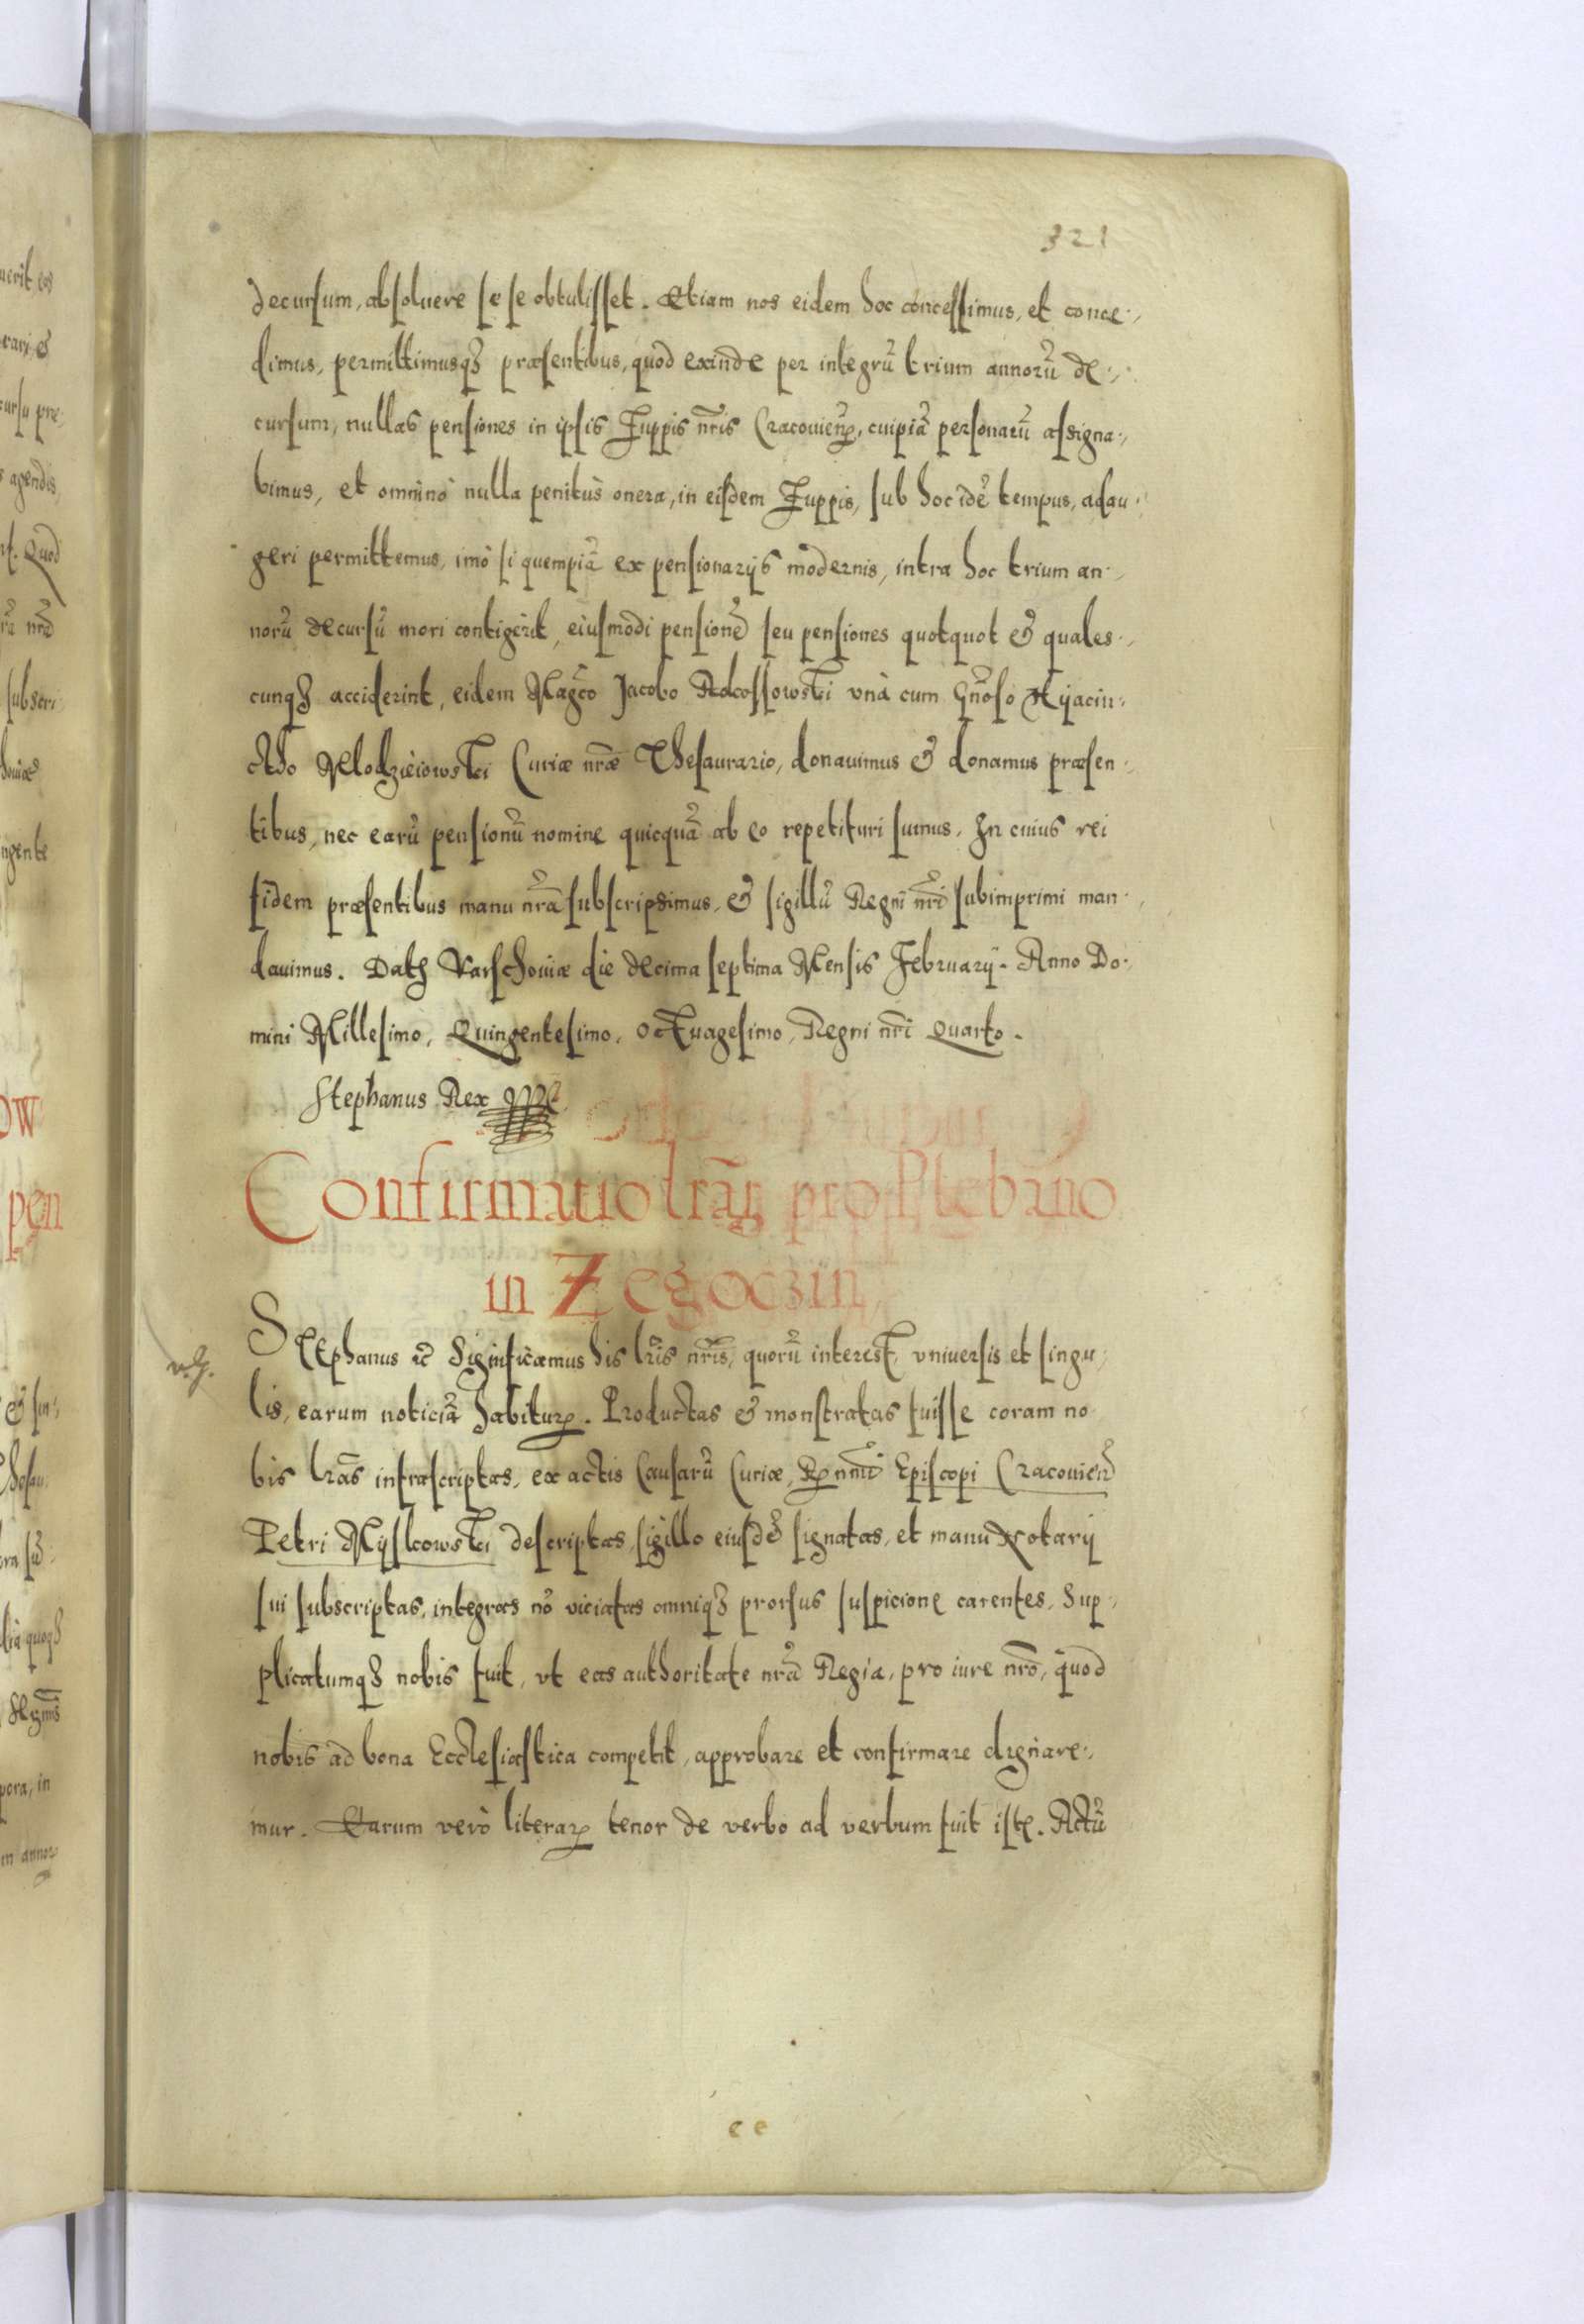 321
decursum, absoluere se se obtulisset. Etiam nos eidem hoc concessimus, et conce-
dimus, permittimusqꝫ præsentibus, quod exinde per integrũ trium annorũ de-
cursum, nullas pensiones in ipsis Zuppis nr̃is Cracouien̄, cuipiã personarũ assigna-
bimus, et omnino nulla penitus onera, in eisdem Zuppis, sub hoc idẽ tempus, adau-
geri permittemus, imò si quempiã ex pensionarijs modernis, intra hoc trium an-
norũ decursũ mori contigerit, eiusmodi pensionẽ seu pensiones quotquot & quales-
cunqꝫ acciderint, eidem Mag̃co Jacobo Rokossowski vnà cum Gñoso Hyacin-
ctho Mlodzieiowski Curiæ nr̃æ Thesaurario, donauimus & donamus præsen-
tibus, nec earũ pensionũ nomine quicquã ab eo repetituri sumus. In cuius rei
fidem præsentibus manu nr̃a subscripsimus, & sigillũ Regni nr̃i subimprimi man-
dauimus. Datꝫ Varschouiæ die decima septima Mensis February. Anno Do-
mini Millesimo, Quingentesimo, Octuagesimo, Regni nr̃i Quarto.
Stephanus Rex
Confirmatio lr̃aꝝ pro Plebano
in Zegoczin
STEphanus ꝛc̃ Significamus his lr̃is nr̃is, quorũ interest, vniuersis et singu-
lis, earum noticiã habituꝝ. Productas & monstratas fuisse coram no
bis lr̃as infrascriptas, ex actis Causarũ Curiæ, Rṇdissimi Episcopi Cracouien̄
Petri Myskowski descriptas, sigillo eiusdẽ signatas, et manu Notarij
sui subscriptas, integras nõ viciatas omniqꝫ prorsus suspicione carentes. Sup-
plicatumqꝫ nobis fuit, vt eas authoritate nr̃a Regia, pro iure nr̃o, quod
nobis ad bona Ecclesiastica competit, approbare et confirmare dignare-
mur. Earum verò literaꝝ tenor de verbo ad verbum fuit iste. Actũ
e e